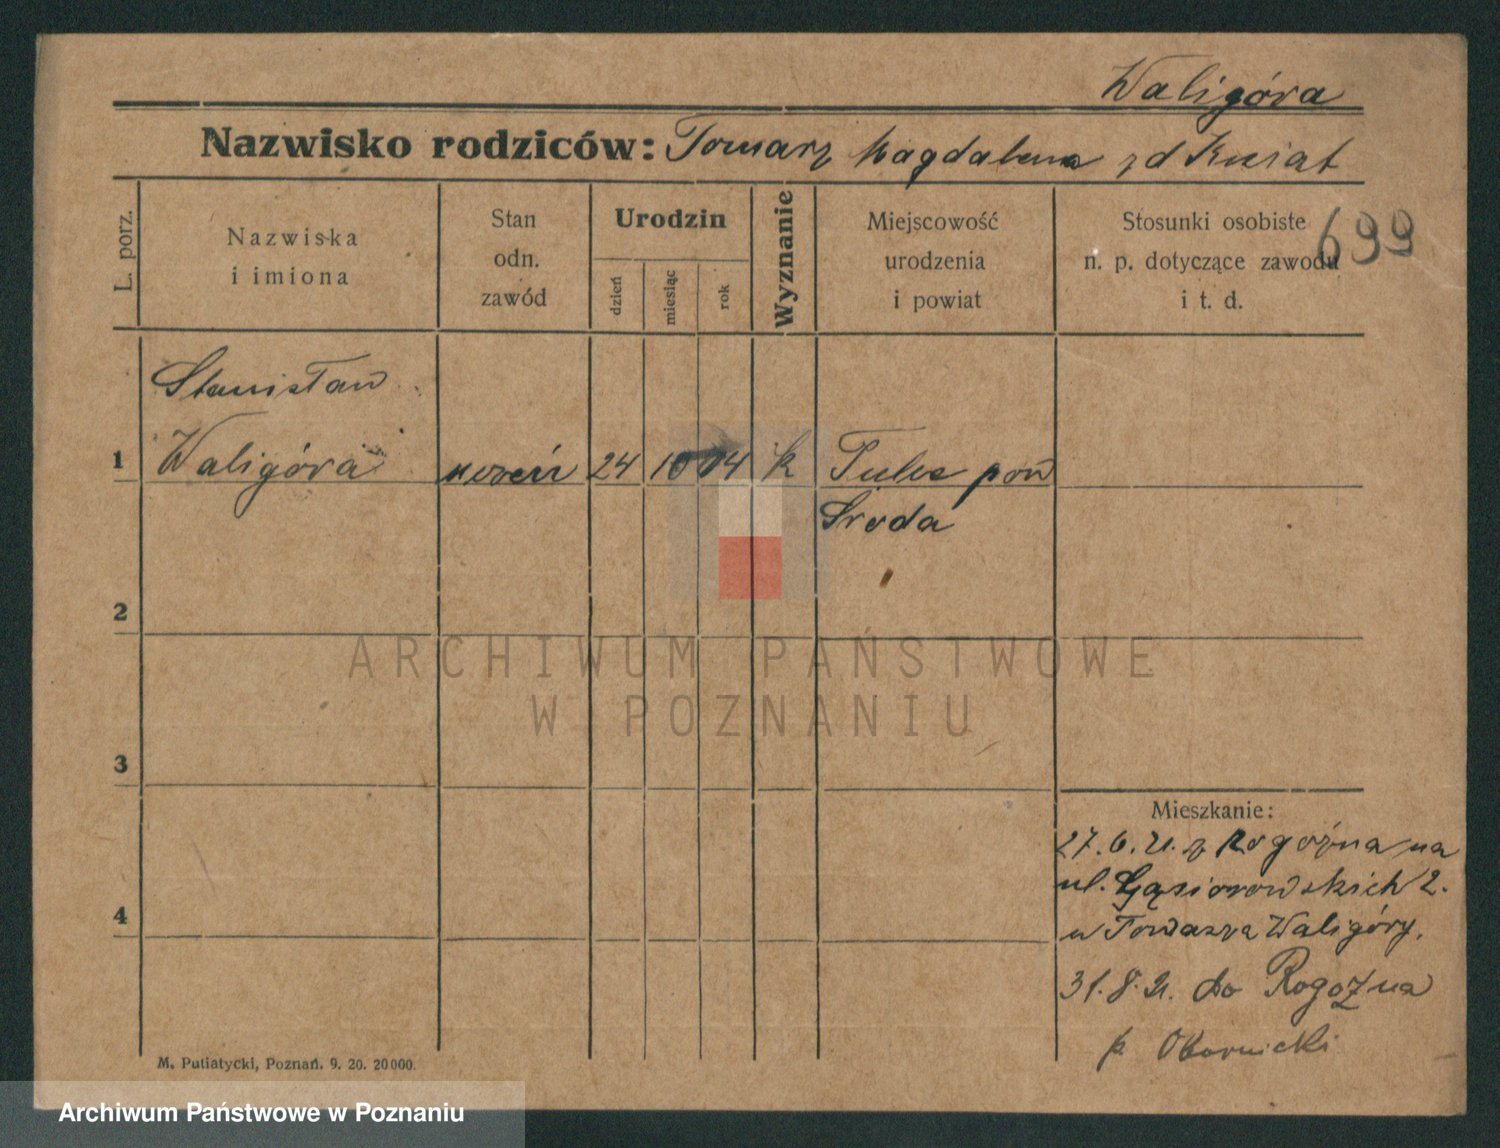 Waligóra
Nazwisko rodziców: Tomasz Magdalena zd Kwiat
L. porz.
Nazwiska
i imiona
Stan
odn.
zawód
Urodzin
dzień
miesiąc
rok
Wyznanie
Miejscowość
urodzenia
i powiat
Stosunki osobiste
n. p. dotyczące zawodu
i t. d.
699
Stanisław
1 Waligóra uczeń 24 10 04 k Tulce pow
Środa
2
ARCHIWUM PAŃSTWOWE
W POZNANIU
3
Mieszkanie:
27.6.21. z Rogoźna na
ul. Gąsiorowskich 2.
4
u Tomasza Waligóry.
31.8.21. do Rogoźna
p Obornicki
M. Putiatycki, Poznań. 9. 20. 20000.
Archiwum Państwowe w Poznaniu